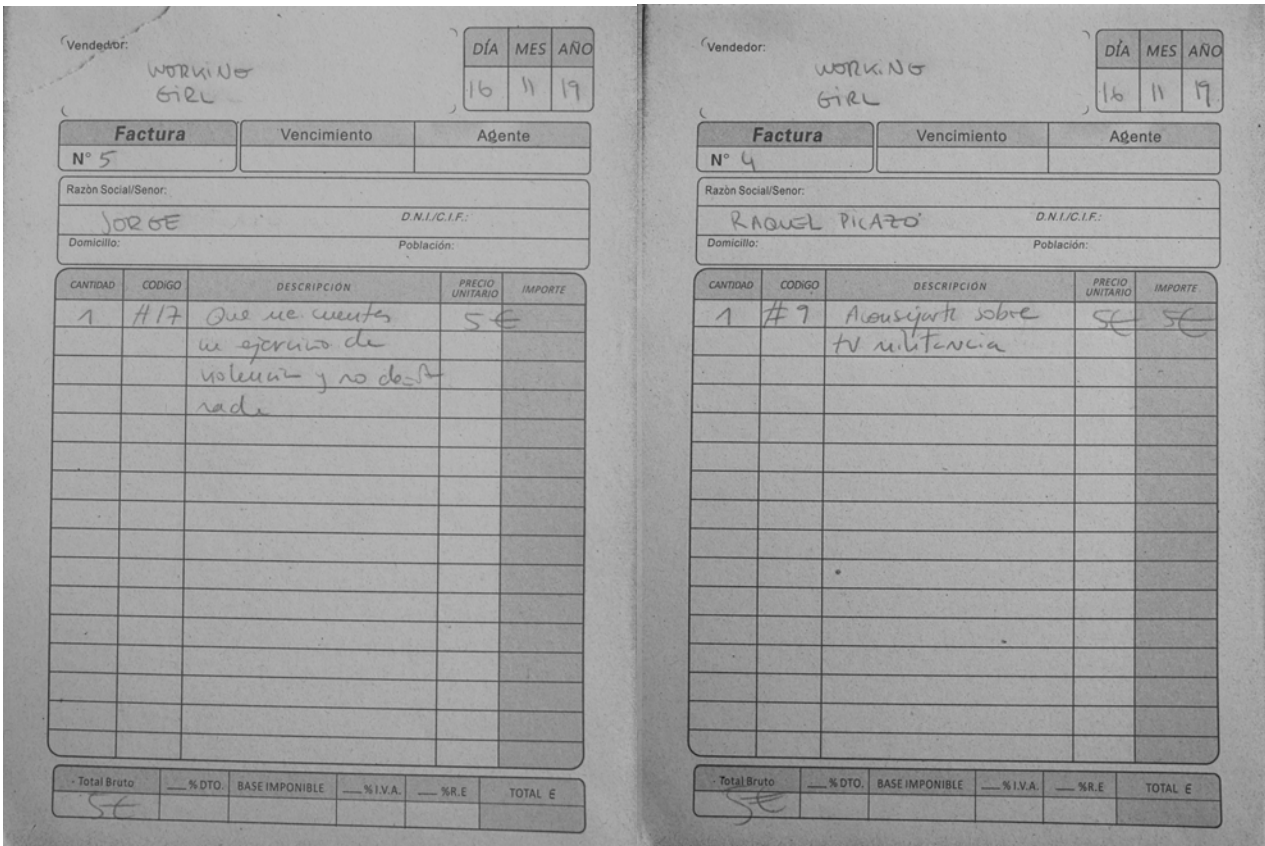 Vendedor:
WORKING
GIRL
DÍA MES AÑO
16 11 19
Factura Vencimiento Agente
N° 5
Razòn Social/Senor:
JORGE D.N.I./C.I.F.:
Domicilio: Población:
CANTIDAD CODIGO DESCRIPCIÓN PRECIO UNITARIO IMPORTE
1 #17 Que me cuentes 5€
un ejercicio de
violencia y no
nada
Total Bruto %DTO. BASE IMPONIBLE %I.V.A. %R.E TOTAL €
5€
Vendedor:
WORKING
GIRL
DÍA MES AÑO
16 11 19
Factura Vencimiento Agente
N° 4
Razòn Social/Senor:
RAQUEL PICAZO D.N.I./C.I.F.:
Domicilio: Población:
CANTIDAD CODIGO DESCRIPCIÓN PRECIO UNITARIO IMPORTE
1 #9 Aconsejarte sobre 5€ 5€
tu militancia
Total Bruto %DTO. BASE IMPONIBLE %I.V.A. %R.E TOTAL €
5€